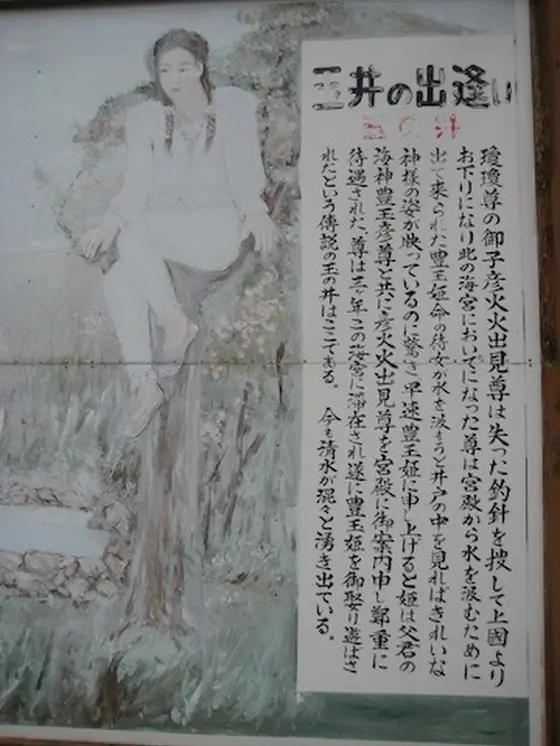 玉井の出逢い
玉の井
瓊瓊尊の御子彦火火出見尊は失った釣針を捜して上國より
お下りになり此の海宮においでになった尊は宮殿から水を汲むために
出て来られた豊玉姫命の侍女が水を汲もうと井戸の中を見ればきれいな
神様の姿が映っているのに驚き早速豊玉姫に申し上げると姫は父君の
海神豊玉彦尊と共に彦火火出見尊を宮殿に御案内申し鄭重に
待遇された、尊は三ヶ年この海宮に滞在され遂に豊玉姫を御娶り遊ばさ
れたという傳説の玉の井はここである。 今も清水が混々と湧き出ている。